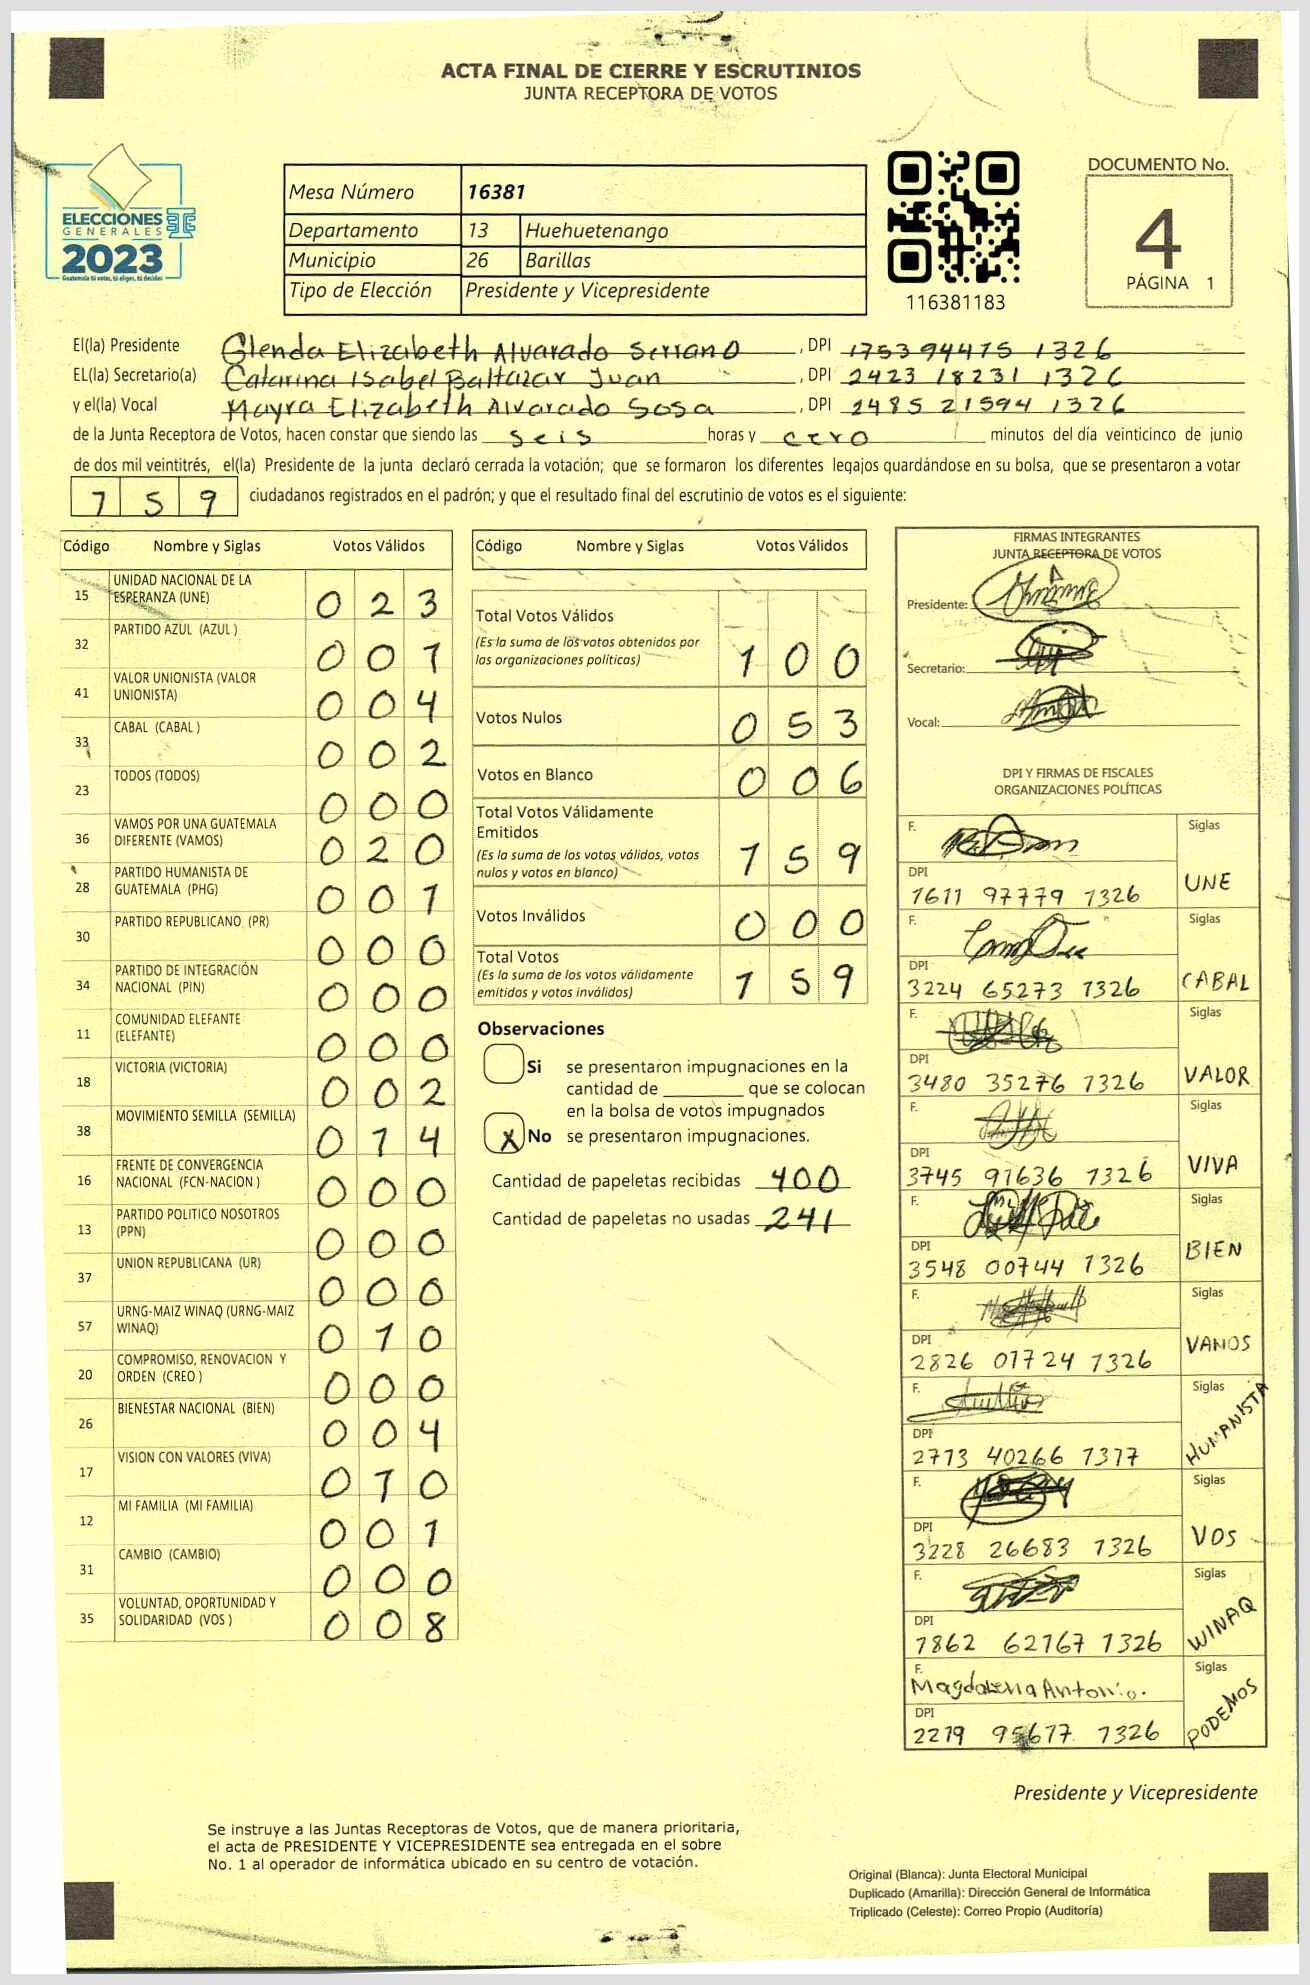 ACTA FINAL DE CIERRE Y ESCRUTINIOS
JUNTA RECEPTORA DE VOTOS
ELECCIONES
GENERALES
2023
Guatemala tú votas, tú eliges, tú decides
Mesa Número 16381
Departamento 13 Huehuetenango
Municipio 26 Barillas
Tipo de Elección Presidente y Vicepresidente
116381183
DOCUMENTO No.
4
PÁGINA 1
El(la) Presidente Glenda Elizabeth Alvarado Serrano, DPI 1753 94475 1326
EL(la) Secretario(a) Catarina Isabel Baltazar Juan, DPI 2423 18231 1326
y el(la) Vocal Mayra Elizabeth Alvarado Sosa, DPI 2485 21594 1326
de la Junta Receptora de Votos, hacen constar que siendo las seis horas y cero minutos del día veinticinco de junio
de dos mil veintitrés, el(la) Presidente de la junta declaró cerrada la votación; que se formaron los diferentes legajos guardándose en su bolsa, que se presentaron a votar
159 ciudadanos registrados en el padrón; y que el resultado final del escrutinio de votos es el siguiente:
Código Nombre y Siglas Votos Válidos
15 UNIDAD NACIONAL DE LA
ESPERANZA (UNE) 0 2 3
32 PARTIDO AZUL (AZUL ) 0 0 1
41 VALOR UNIONISTA (VALOR
UNIONISTA) 0 0 4
33 CABAL (CABAL ) 0 0 2
23 TODOS (TODOS) 0 0 0
36 VAMOS POR UNA GUATEMALA
DIFERENTE (VAMOS) 0 2 0
28 PARTIDO HUMANISTA DE
GUATEMALA (PHG) 0 0 1
30 PARTIDO REPUBLICANO (PR) 0 0 0
34 PARTIDO DE INTEGRACIÓN
NACIONAL (PIN) 0 0 0
11 COMUNIDAD ELEFANTE
(ELEFANTE) 0 0 0
18 VICTORIA (VICTORIA) 0 0 2
38 MOVIMIENTO SEMILLA (SEMILLA) 0 1 4
16 FRENTE DE CONVERGENCIA
NACIONAL (FCN-NACION ) 0 0 0
13 PARTIDO POLITICO NOSOTROS
(PPN) 0 0 0
37 UNION REPUBLICANA (UR) 0 0 0
57 URNG-MAIZ WINAQ (URNG-MAIZ
WINAQ) 0 1 0
20 COMPROMISO, RENOVACION Y
ORDEN (CREO ) 0 0 0
26 BIENESTAR NACIONAL (BIEN) 0 0 4
17 VISION CON VALORES (VIVA) 0 1 0
12 MI FAMILIA (MI FAMILIA) 0 0 1
31 CAMBIO (CAMBIO) 0 0 0
35 VOLUNTAD, OPORTUNIDAD Y
SOLIDARIDAD (VOS ) 0 0 8
Código Nombre y Siglas Votos Válidos
Total Votos Válidos
(Es la suma de los votos obtenidos por
las organizaciones políticas) 1 0 0
Votos Nulos 0 5 3
Votos en Blanco 0 0 6
Total Votos Válidamente
Emitidos
(Es la suma de los votos válidos, votos
nulos y votos en blanco) 1 5 9
Votos Inválidos 0 0 0
Total Votos
(Es la suma de los votos válidamente
emitidos y votos inválidos) 1 5 9
Observaciones
Si se presentaron impugnaciones en la
cantidad de ________ que se colocan
en la bolsa de votos impugnados
X No se presentaron impugnaciones.
Cantidad de papeletas recibidas 400
Cantidad de papeletas no usadas 241
FIRMAS INTEGRANTES
JUNTA RECEPTORA DE VOTOS
Presidente:
Secretario:
Vocal:
DPI Y FIRMAS DE FISCALES
ORGANIZACIONES POLÍTICAS
F. Siglas
DPI UNE
1611 97779 1326
F. Siglas
DPI CABAL
3224 65273 1326
F. Siglas
DPI VALOR
3480 35276 1326
F. Siglas
DPI VIVA
3745 91636 1326
F. Siglas
DPI BIEN
3548 00744 1326
F. Siglas
DPI VAMOS
2826 01724 1326
F. Siglas
DPI HUMANISTA
2713 40266 1317
F. Siglas
DPI VOS
3228 26683 1326
F. Siglas
DPI WINAQ
1862 62167 1326
F. Magdalena Antonio. Siglas
DPI PODEMOS
2219 95677 1326
Presidente y Vicepresidente
Se instruye a las Juntas Receptoras de Votos, que de manera prioritaria,
el acta de PRESIDENTE Y VICEPRESIDENTE sea entregada en el sobre
No. 1 al operador de informática ubicado en su centro de votación.
Original (Blanca): Junta Electoral Municipal
Duplicado (Amarilla): Dirección General de Informática
Triplicado (Celeste): Correo Propio (Auditoría)